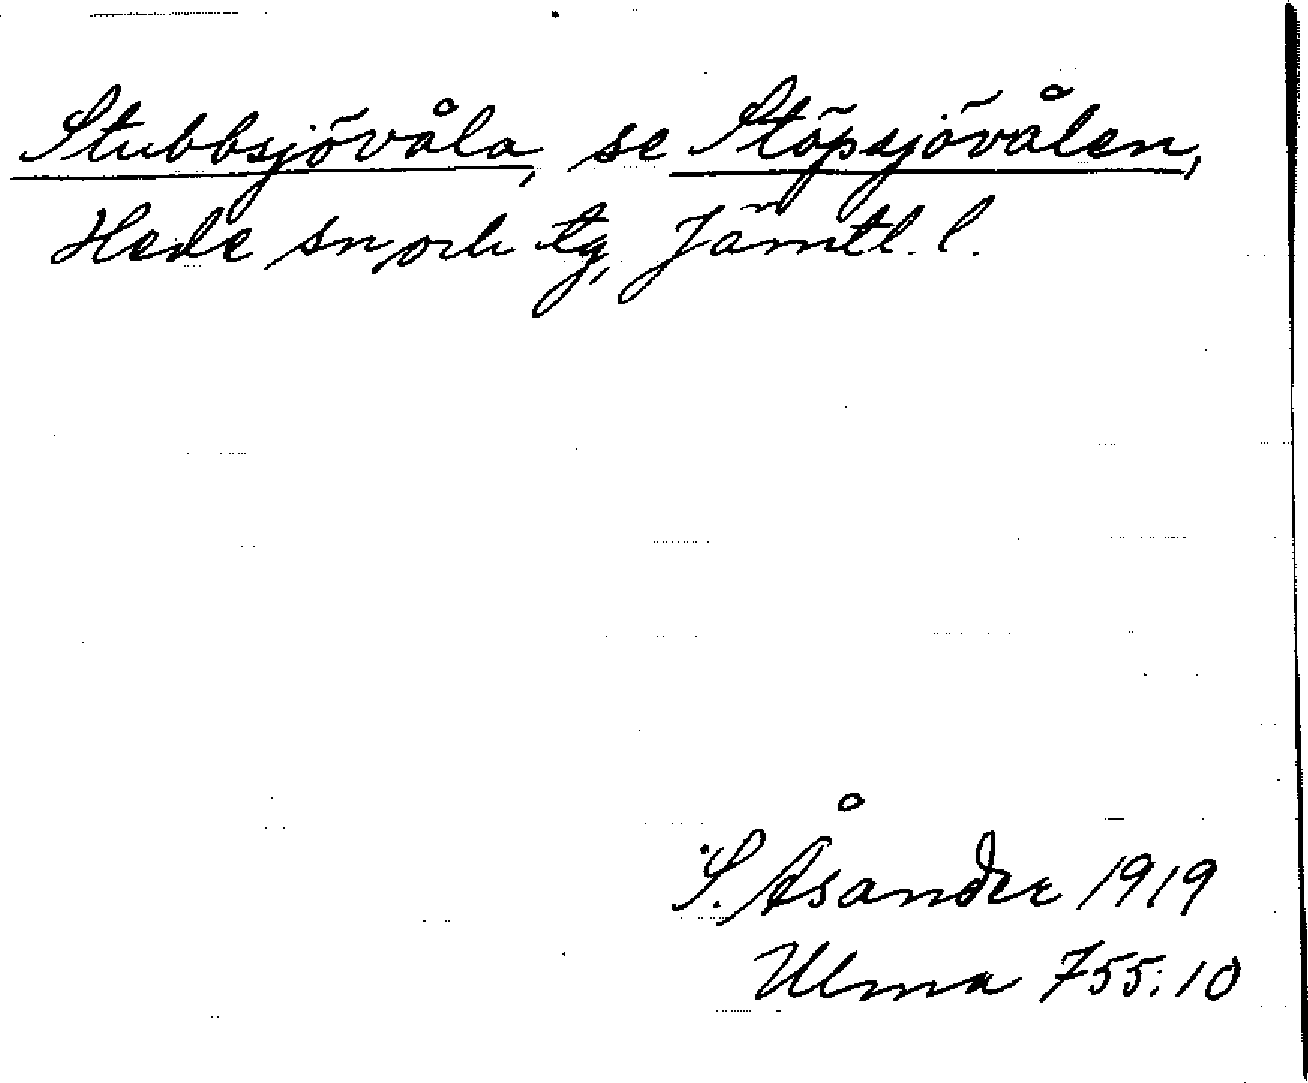 Stubbsjövåla, se Stöpsjövålen,
Hede sn och tg, Jämtl. l.
S. Åsander 1919
Ulma 755:10